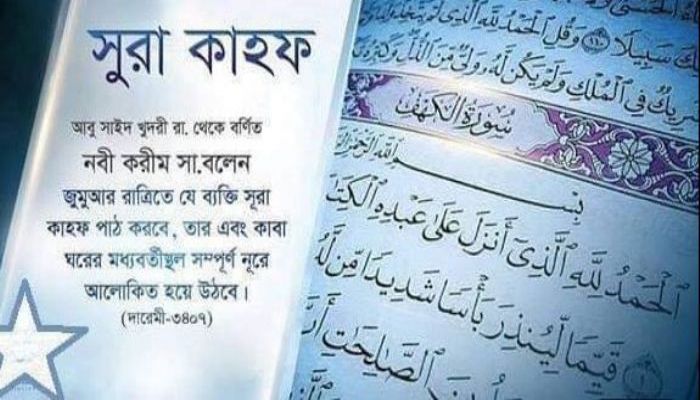 সুরা কাহফ
আবু সাইদ খুদরী রা. থেকে বর্ণিত
নবী করীম সা.বলেন
জুমুআর রাত্রিতে যে ব্যক্তি সূরা
কাহফ পাঠ করবে, তার এবং কাবা
ঘরের মধ্যবর্তীস্থল সম্পূর্ণ নূরে
আলোকিত হয়ে উঠবে।
(দারেমী-৩৪০৭)
سَبِيلًا ۝١١٠ وَقُلِ الْحَمْدُ لِلَّهِ الَّذِي لَمْ يَتَّخِذْ
شَرِيكٌ فِي الْمُلْكِ وَلَمْ يَكُن لَّهُ وَلِيٌّ مِّنَ الذُّلِّ وَكَبِّرْهُ
سُورَةُ الْكَهْفِ
بِسْمِ اللَّهِ الرَّحْمَٰنِ
الْحَمْدُ لِلَّهِ الَّذِي أَنزَلَ عَلَىٰ عَبْدِهِ الْكِتَابَ
۝١ قَيِّمًا لِّيُنذِرَ بَأْسًا شَدِيدًا مِّن لَّدُ
الصَّالِحَاتِ أَنَّ